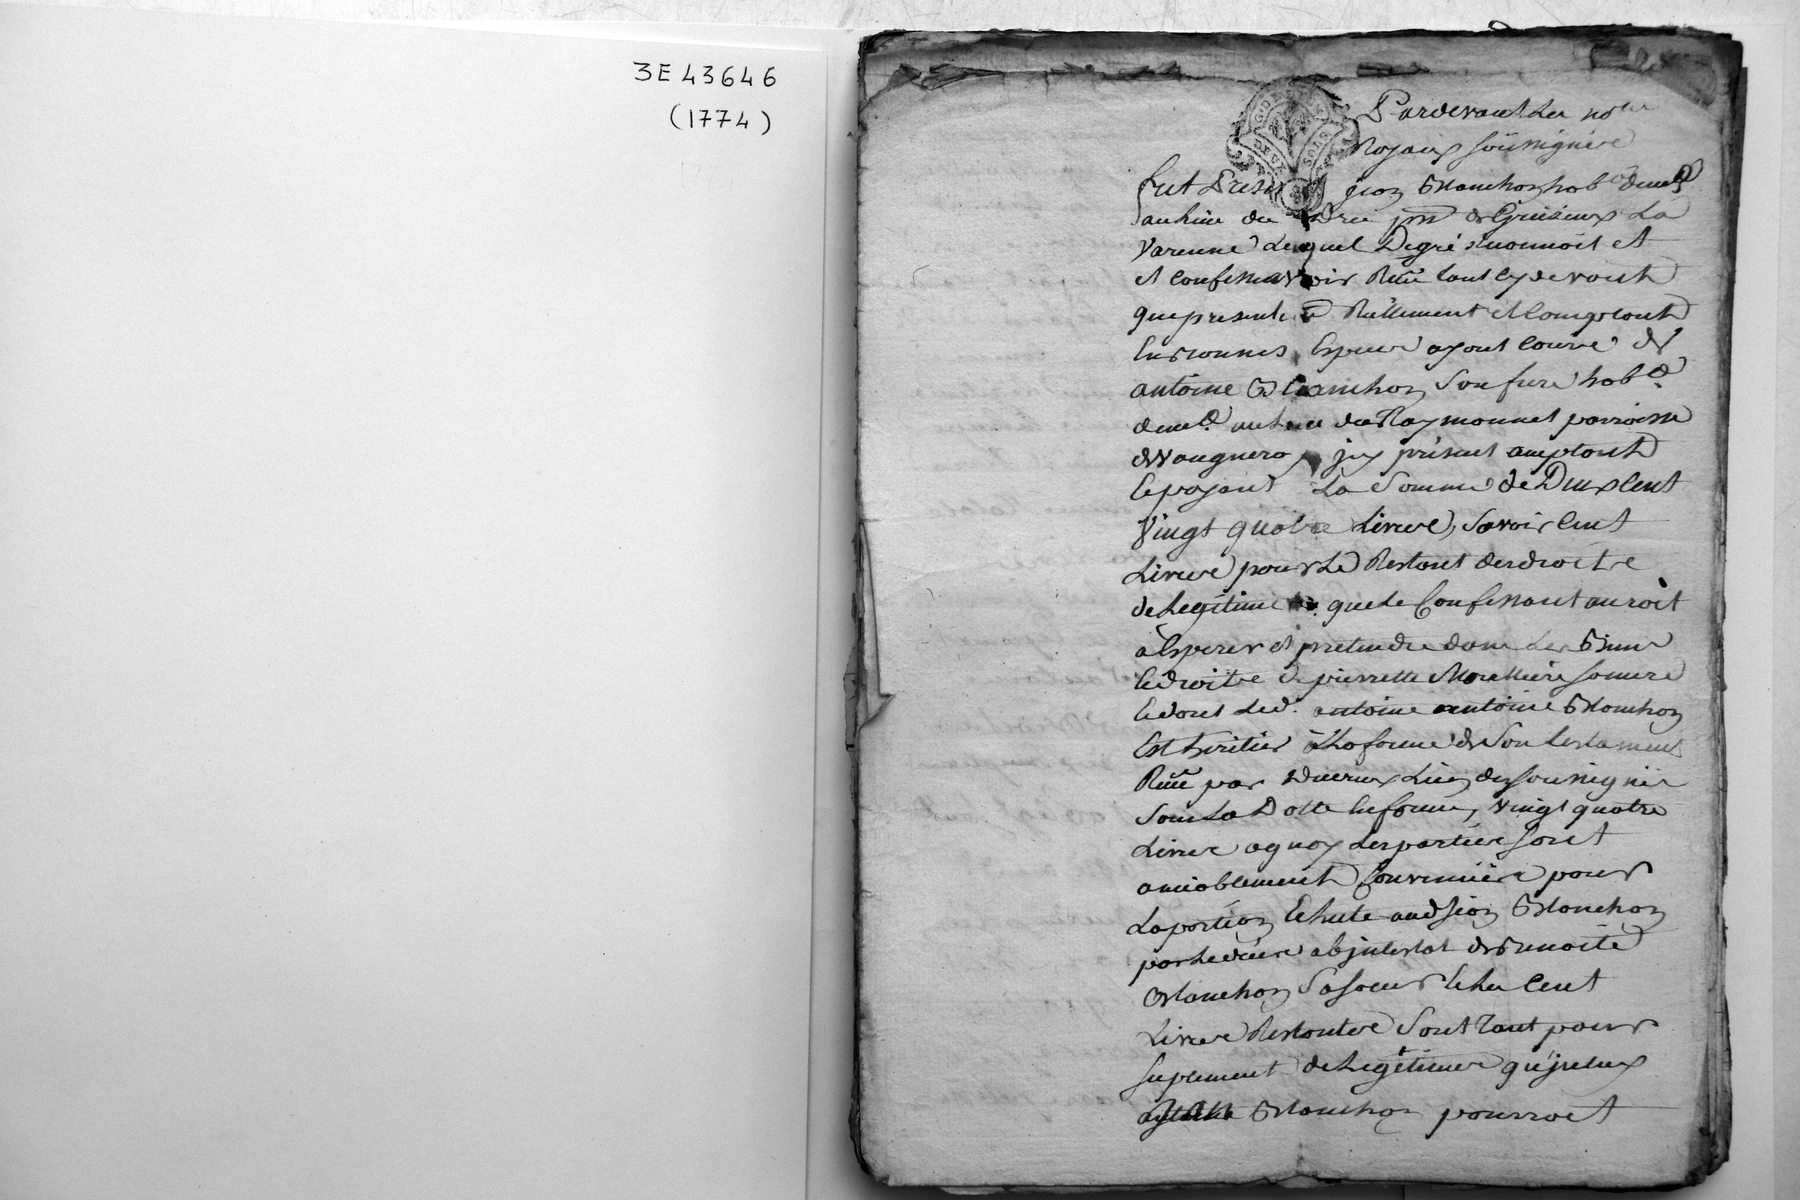 3E 43646
(1774)
Pardevant Les no.res
Royaux soussignéez
fut Présent jean Blanchon hab.t demt
au lieu du prse de Grezieux La
Varenne Lequel Degré reconnoit et
et confesse avoir Receu tant cy devant
que presentem.t Réellement et comptant
en bonnes Especes ayant cours de
antoine Blanchon Son frere hab.t
demt. au lieu du Raymonnet parroisse
de vaugneray jcy présent acceptant
et payant La Somme de Deux cent
Vingt quatre Livres, Savoir cent
Livres pour Le Restant des droits
de Legitime que Le Confessant auroit
à Esperer et pretendre dans Les Biens
et droits de pierrette sa mere
et dont Led. antoine antoine Blanchon
Est heritier à La forme de Son testament
Receu par L'un des soussignéz
Sous La Datte En forme, vingt quatre
Livres a quoy Les parties sont
amiablement Convenües pour
La portion Echüe aud jean Blanchon
par Le déces abjntestat de Benoite
Blanchon Sa soeur et Les cent
Livres Restantes Sont tant pour
suplement de Legitime qu'jcelux
Blanchon pourroit